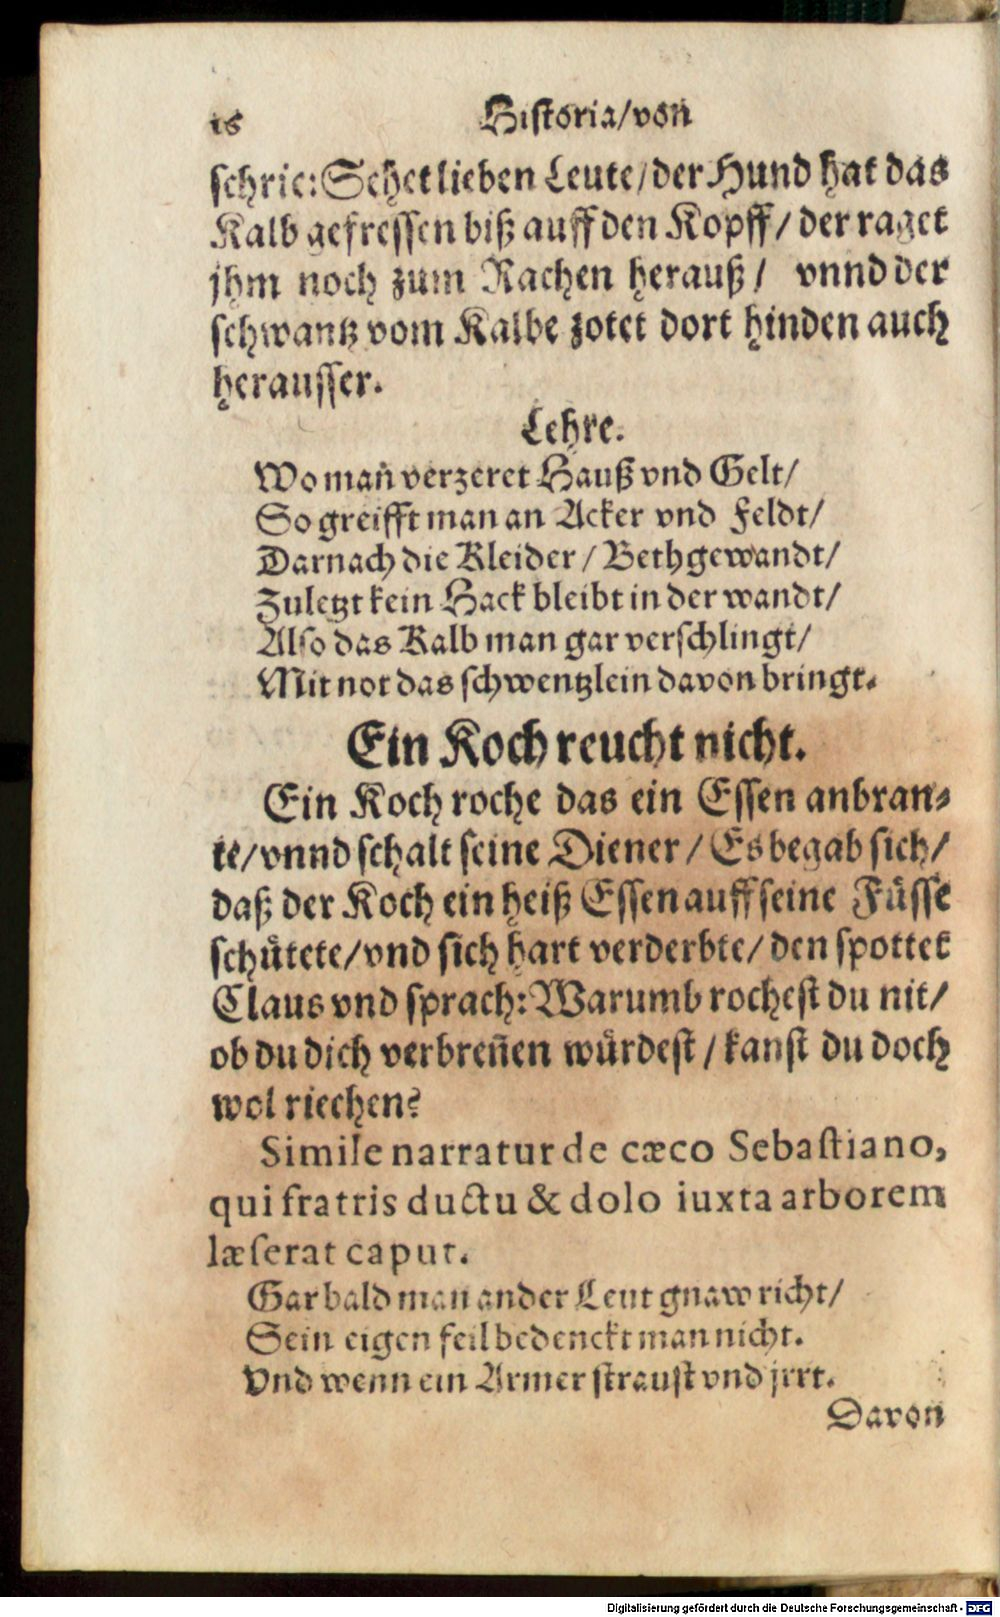 16 Historia/von
schrie: Sehet lieben Leute/der Hund hat das
Kalb gefressen biß auff den Kopff/ der raget
jhm noch zum Rachen herauß/ vnnd der
schwantz vom Kalbe zotet dort hinden auch
herausser.
Lehre.
Wo man̄ verzeret Hauß vnd Gelt/
So greifft man an Acker vnd Feldt/
Darnach die Kleider/ Bethgewandt/
Zuletzt kein Hack bleibt in der wandt/
Also das Kalb man gar verschlingt/
Mit not das schwentzlein davon bringt.
Ein Koch reucht nicht.
Ein Koch roche das ein Essen anbran-
te/vnnd schalt seine Diener/ Es begab sich/
daß der Koch ein heiß Essen auff seine Füsse
schütete/vnd sich hart verderbte/ den spottet
Claus vnd sprach: Warumb rochest du nit/
ob du dich verbren̄en würdest/ kanst du doch
wol riechen?
Simile narratur de cæco Sebastiano,
qui fratris ductu & dolo iuxta arborem
læserat caput.
Gar bald man ander Leut gnaw richt/
Sein eigen feil bedenckt man nicht.
Vnd wenn ein Armer straust vnd jrrt.
Davon
Digitalisierung gefördert durch die Deutsche Forschungsgemeinschaft - DFG